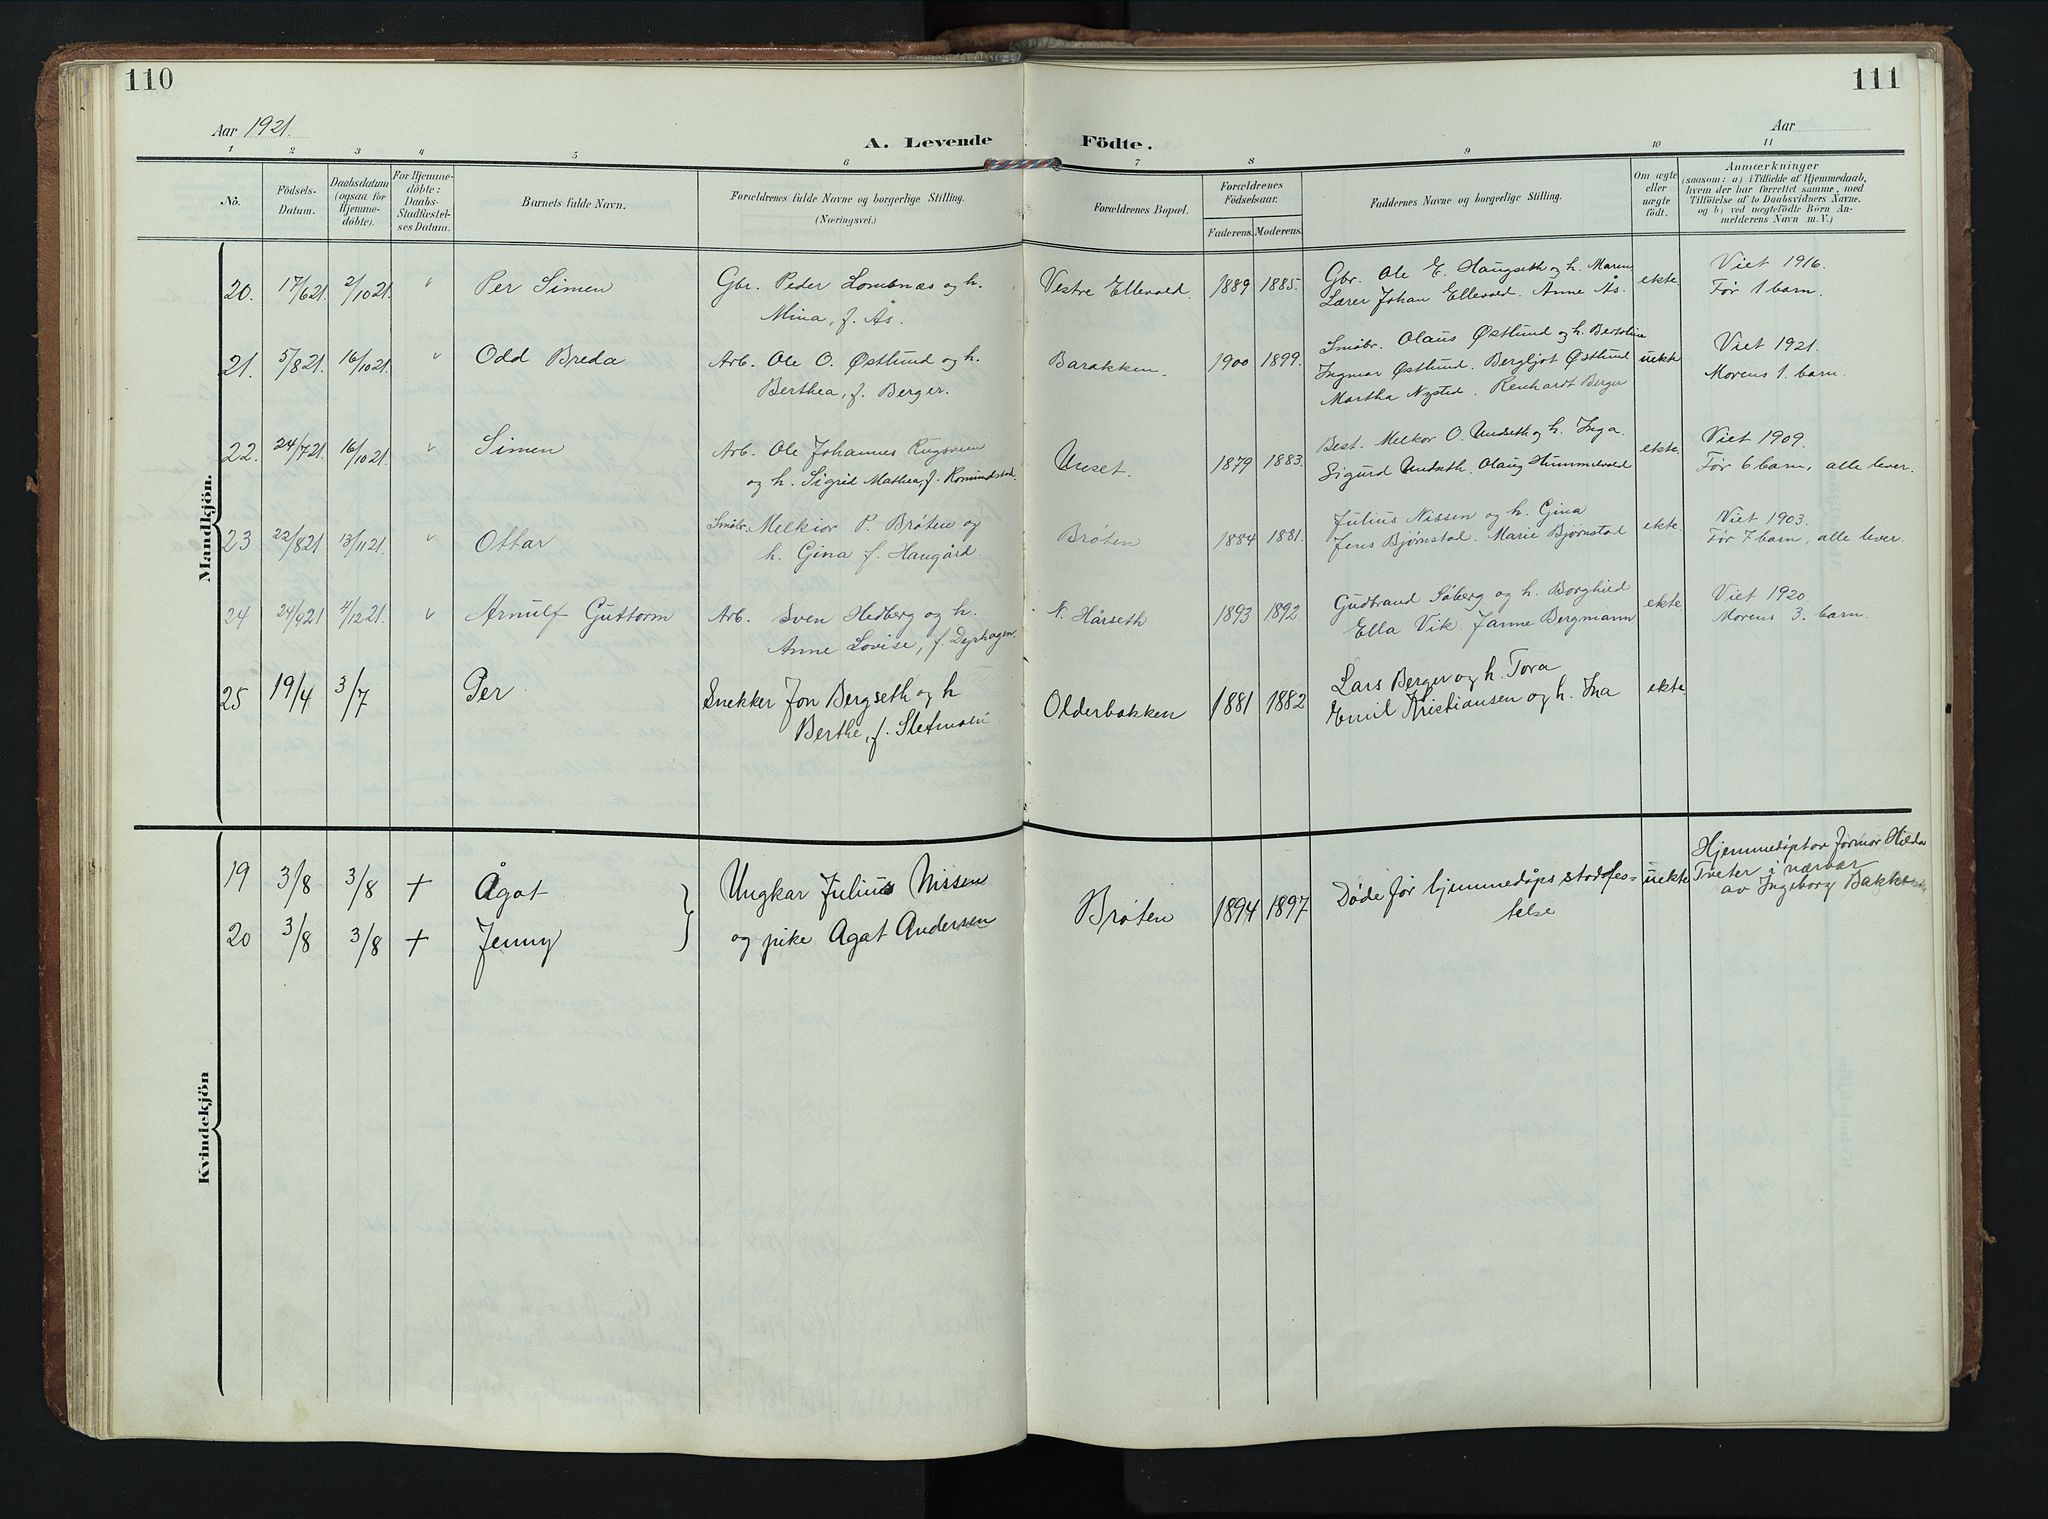 110
111
Aar 1921.
A. Levende
Födte.
Aar
1 2 3 4 5 6 7 8 9 10 11
Nö.
Födsels-
Datum.
Daabsdatum
(ogsaa for
Hjemme-
döbte).
For Hjemme-
döbte:
Daabs-
Stadfæstel-
ses Datum.
Barnets fulde Navn.
Forældrenes fulde Navne og borgerlige Stilling.
(Næringsvei.)
Forældrenes Bopæl.
Forældrenes
Födselsaar.
Faderens. Moderens.
Faddernes Navne og borgerlige Stilling.
Om ægte
eller
uægte
födt.
Anmærkninger
(saasom: a) i Tilfælde af Hjemmedaab,
hvem der har forrettet samme, med
Tilföielse af to Daabsvidners Navne,
og b) ved uægtefödte Börn An-
melderens Navn m. V.)
Mandkjön.
20. 17/6 21. 2/10 21. " Per Simen
Gbr. Peder Lombnæs og h.
Mina, f. Ås.
Vestre Ellevold. 1889 1885.
Gbr. Ole E. Haugseth og h. Maren
Lærer Johan Ellevold. Anne Ås.
ekte
Viet 1916.
Før 1 barn.
21. 5/8 21. 16/10 21. " Odd Breda
Arb. Ole O. Østlund og h.
Berthea, f. Berger.
Barakken. 1900 1899.
Småbr. Olaus Østlund og h. Bertoline
Ingmar Østlund. Bergljot Østlund
Martha Nysted. Renhardt Berger
uekte
Viet 1921.
Morens 1. barn.
22. 24/7 21. 16/10 21. " Simen
Arb. Ole Johannes Rugsveen
og h. Sigrid Mathea, f. Romundstad.
Unset. 1879 1883.
Best. Melkor O. Undseth og h. Inga.
Sigurd Undseth. Olaug Hummelvold
ekte.
Viet 1909.
Før 6 barn, alle lever.
23 22/8 21 13/11 21. " Ottar
Småbr. Melkior P. Brøten og
h. Gina f. Haugård.
Brøten 1884 1881.
Julius Nissen og h. Gina
Jens Bjørnstad. Marie Bjørnstad
ekte.
Viet 1903.
Før 7 barn, alle lever.
24 24/9 21 4/12 21. " Arnulf Guttorm
Arb. Sven Hedberg og h.
Anne Lovise, f. Dyrhagen.
N. Hårseth 1893 1892
Gudbrand Søberg og h. Borghild
Ella Vik. Janne Bergmann
ekte
Viet 1920.
Morens 3. barn.
25 19/4 3/7 Per
Snekker Jon Bergseth og h
Berthe, f. Sletmoen
Olderbakken 1881 1882
Lars Berger og h. Tora
Emil Kristiansen og h. Ina
ekte
Kvindekjön
19 3/8 3/8 + Ågot
20 3/8 3/8 + Jenny
Ungkar Julius Nissen
og pike Agat Andersen
Brøten 1894 1897
Døde før hjemmedåps stadfes-
telse
uekte
Hjemmedøpt av formor Hilda
Tveter i nærvær
av Ingeborg